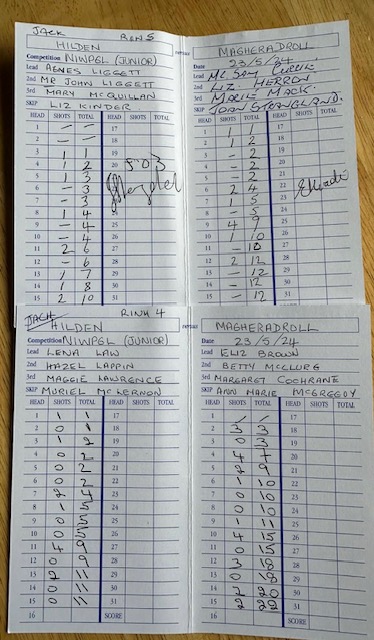 JACK RINK 5
HILDEN versus
Competition NIWPGL (JUNIOR)
Lead AGNES LIGGETT
2nd MR JOHN LIGGETT
3rd MARY MCQUILLAN
SKIP LIZ KINDER
HEAD SHOTS TOTAL HEAD SHOTS TOTAL
1 – – 17
2 – – 18
3 1 1 19
4 1 2 20 503
5 1 3 21
6 – 3 22
7 – 3 23
8 1 4 24
9 – 4 25
10 – 4 26
11 2 6 27
12 – 6 28
13 1 7 29
14 1 8 30
15 2 10 31
MAGHERADROLL
Date 23/5/24
Lead Mr Sam
2nd LIZ HERRON
3rd Mack
SKIP JOAN
HEAD SHOTS TOTAL HEAD SHOTS TOTAL
1 1 1 17
2 1 2 18
3 – 2 19
4 – 2 20
5 – 2 21
6 2 4 22
7 1 5 23
8 – 5 24
9 4 9 25
10 1 10 26
11 – 10 27
12 2 12 28
13 – 12 29
14 – 12 30
15 – 12 31
JACK RINK 4
HILDEN versus
Competition NIWPGL (JUNIOR)
Lead LENA LAW
2nd HAZEL LAPPIN
3rd MAGGIE LAWRENCE
SKIP MURIEL MCLERNON
HEAD SHOTS TOTAL HEAD SHOTS TOTAL
1 1 1 17
2 0 1 18
3 1 2 19
4 0 2 20
5 0 2 21
6 0 2 22
7 2 4 23
8 1 5 24
9 0 5 25
10 0 5 26
11 4 9 27
12 0 9 28
13 2 11 29
14 0 11 30
15 0 11 31
16 SCORE
MAGHERADROLL
Date 23/5/24
Lead ELIZ BROWN
2nd BETTY MCCLURG
3rd MARGARET COCHRANE
SKIP ANN MARIE MCGREEVY
HEAD SHOTS TOTAL HEAD SHOTS TOTAL
1 0 0 17
2 3 3 18
3 0 3 19
4 4 7 20
5 2 9 21
6 1 10 22
7 0 10 23
8 0 10 24
9 1 11 25
10 4 15 26
11 0 15 27
12 3 18 28
13 0 18 29
14 2 20 30
15 2 22 31
16 SCORE